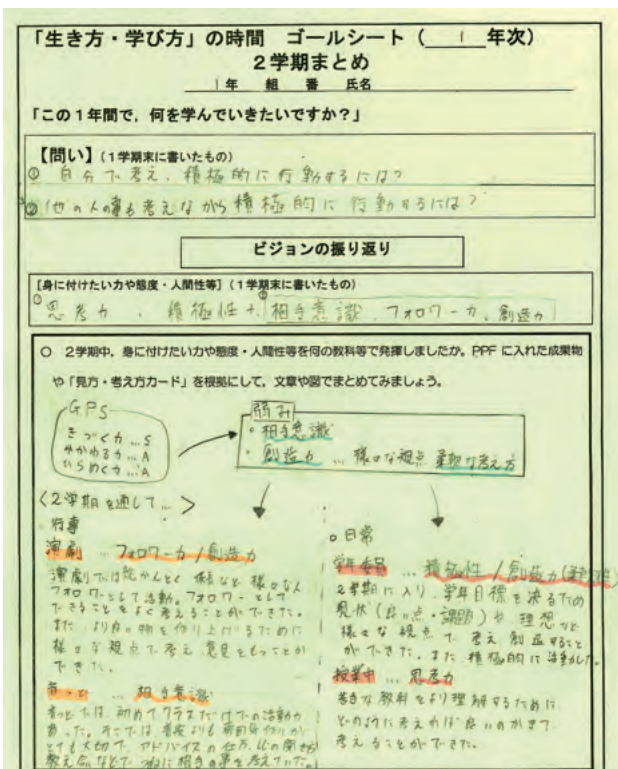 「生き方・学び方」の時間　ゴールシート（　1　年次）
２学期まとめ
1年　組　番　氏名
「この１年間で，何を学んでいきたいですか？」
【問い】(１学期末に書いたもの)
① 自分で考え、積極的に行動するには？
② 他の人の事も考えながら積極的に行動するには？
ビジョンの振り返り
[身に付けたい力や態度・人間性等]（１学期末に書いたもの）
① 思考力、積極性 + ② 相手意識、フォロワー力、創造力
○　２学期中，身に付けたい力や態度・人間性等を何の教科等で発揮しましたか。PPF に入れた成果物
や「見方・考え方カード」を根拠にして，文章や図でまとめてみましょう。
GPS
きづく力…S
かかわる力…A
ひらめく力…A
弱み
・相手意識
・創造力…様々な視点 柔軟な考え方
〈２学期を通して…〉
・行事
演劇…フォロワー力/創造力
演劇では 係など様々な人
フォロワーとして活動。フォロワーとして
できることをよく考えることができた。
また、より良い物を作り上げるために
様々な視点で考え意見をもつことが
できた。
…相手意識
では、初めてクラスだけでの活動が
あった。そこでは、
とても大切で、アドバイスの仕方、
教え合いなどで つねに相手の事を考えていた。
・日常
学年委員…積極性/創造力(柔軟性)
２学期に入り、学年目標を決るため
現状(良い点・課題)や理想など
様々な視点で考え創造すること
ができた。また積極的に活動した。
授業中…思考力
教科をより理解するために
どのように考えれば良いのかまで
考えることができた。